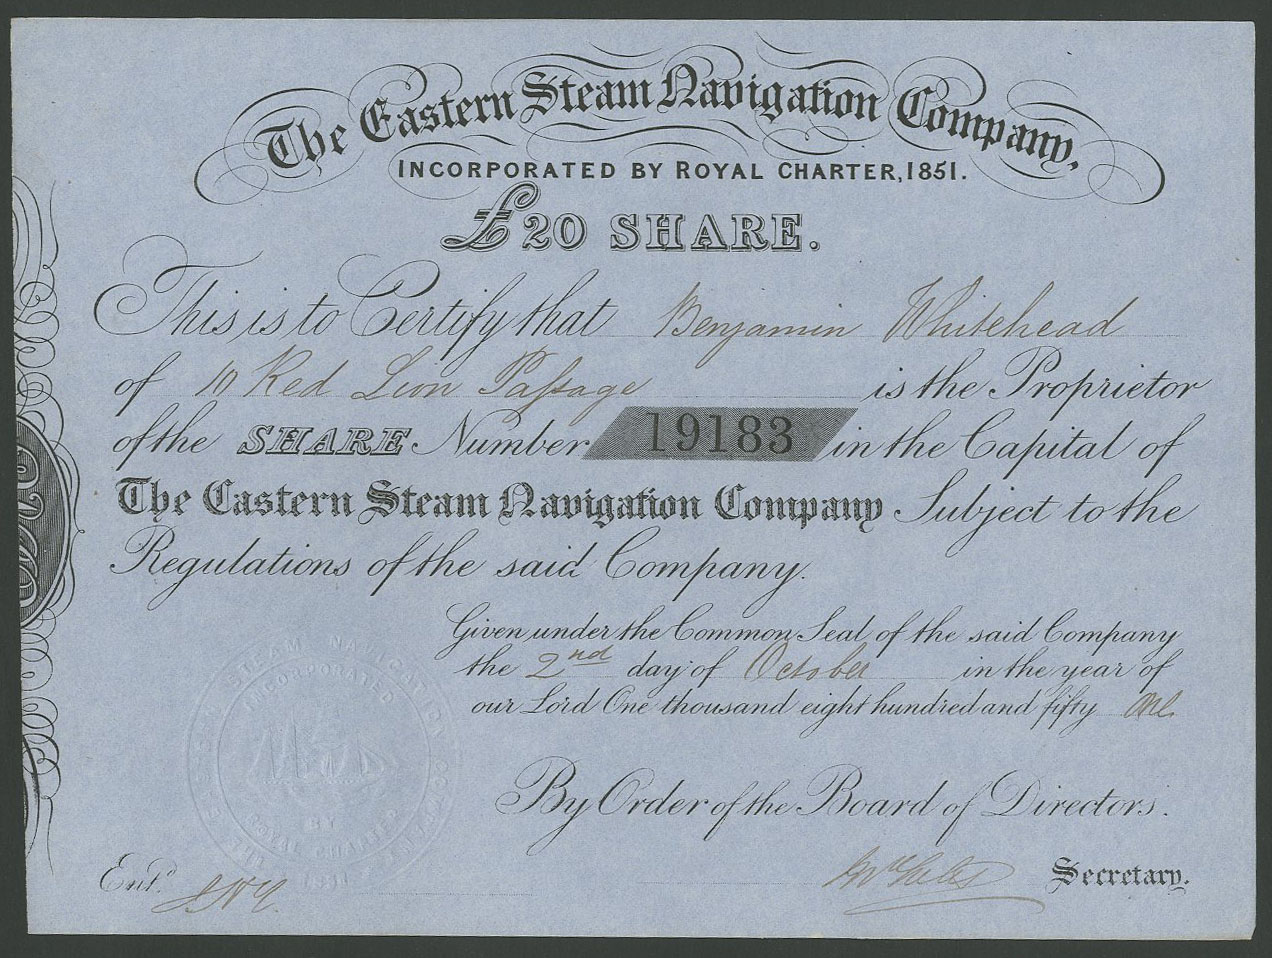 The Eastern Steam Navigation Company,
INCORPORATED BY ROYAL CHARTER, 1851.
£20 SHARE.
This is to Certify that Benjamin Whitehead
of 10 Red Lion Paſsage is the Proprietor
of the SHARE Number 19183 in the Capital of
The Eastern Steam Navigation Company Subject to the
Regulations of the said Company.
Given under the Common Seal of the said Company
the 2nd day of October in the year of
our Lord One thousand eight hundred and fifty One
By Order of the Board of Directors.
Secretary.
Entd.
THE EASTERN STEAM NAVIGATION COMPANY
INCORPORATED
BY
ROYAL CHARTER
1851